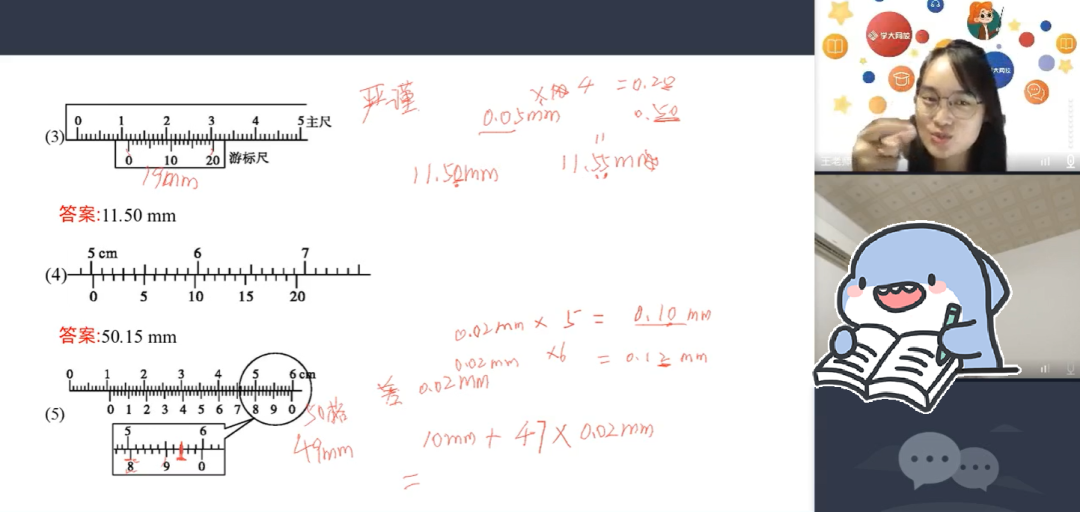 严谨
×4 = 0.20
0.05mm
0.50
0 1 2 3 4 5 主尺
(3)
0 10 20 游标尺
19mm
11.50mm
11.55mm
答案:11.50 mm
5 cm 6 7
(4)
0 5 10 15 20
答案:50.15 mm
0.02mm × 5 = 0.10 mm
0.02mm ×6 = 0.12 mm
0 1 2 3 4 5 6 cm
差 0.02mm
(5)
0 1 2 3 4 5 6 7 8 9 0
50格
49mm
5 6
8 9 0
10mm + 47 × 0.02mm
=
学大网校
大网校